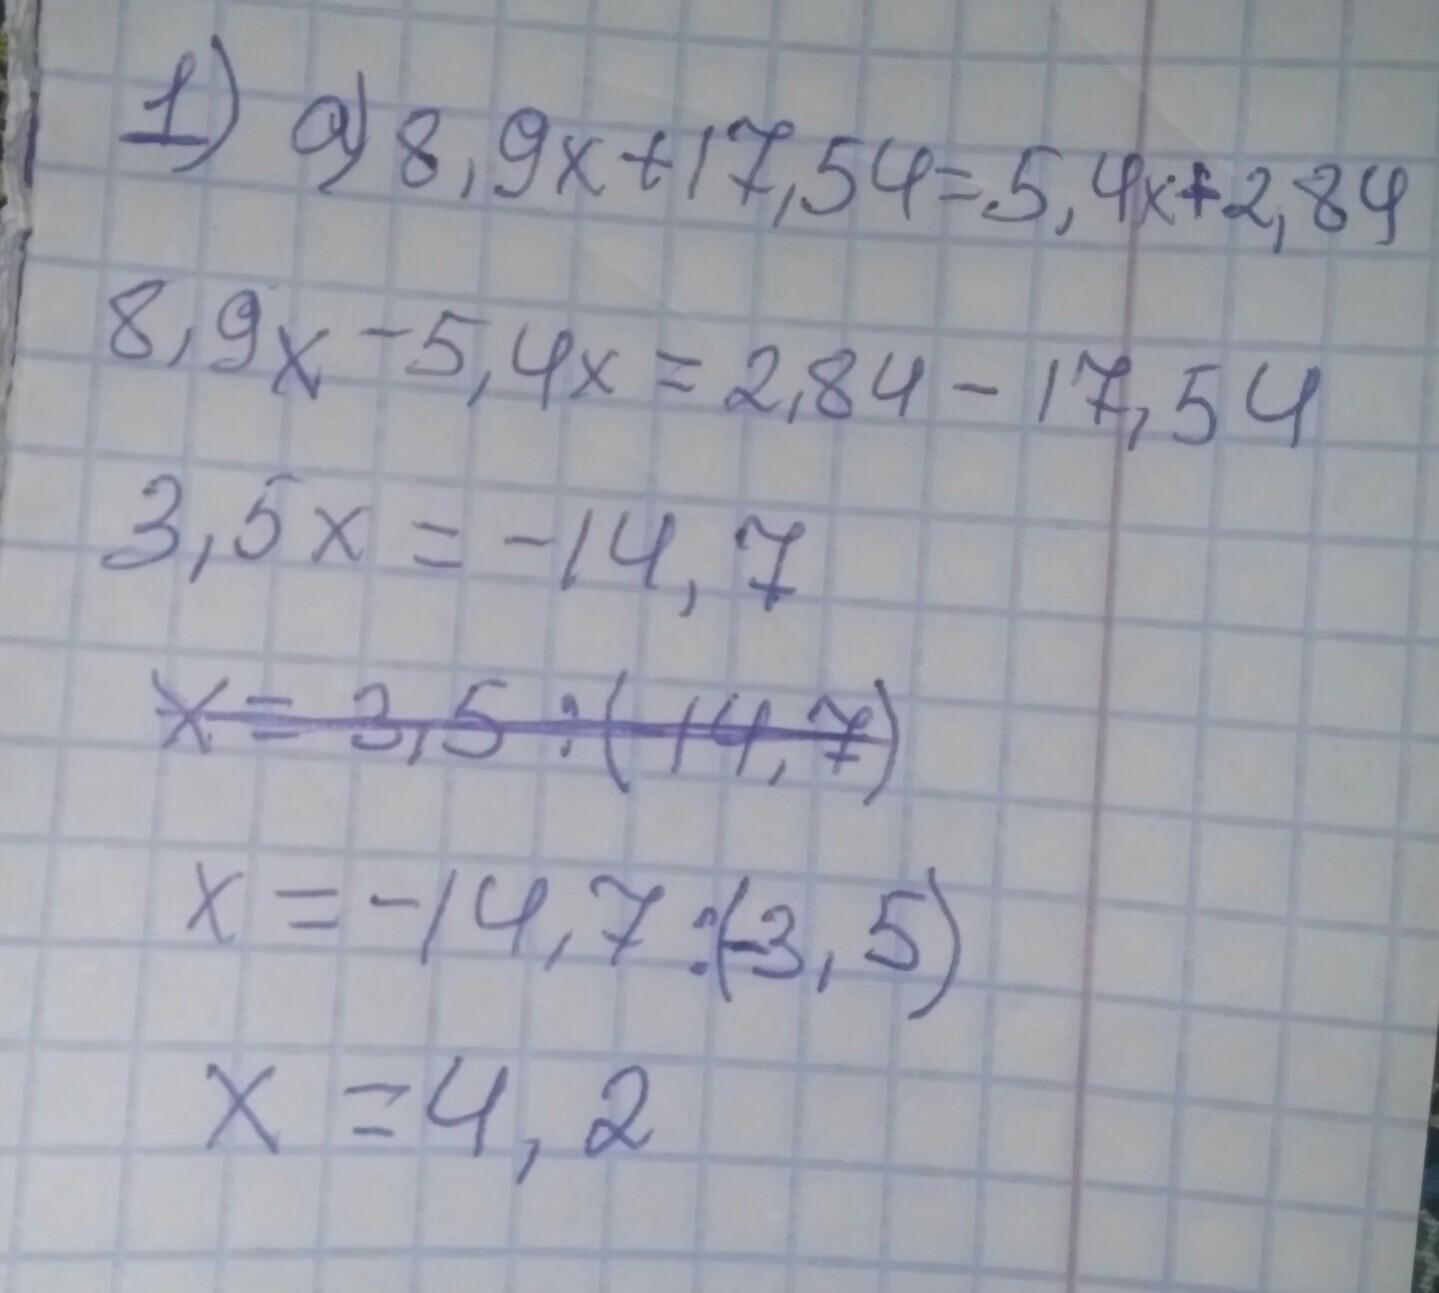 1) а) 8,9x+17,54=5,4x+2,84
8,9x-5,4x=2,84-17,54
3,5x=-14,7
x=3,5:(14,7)
x=-14,7:(-3,5)
x=4,2